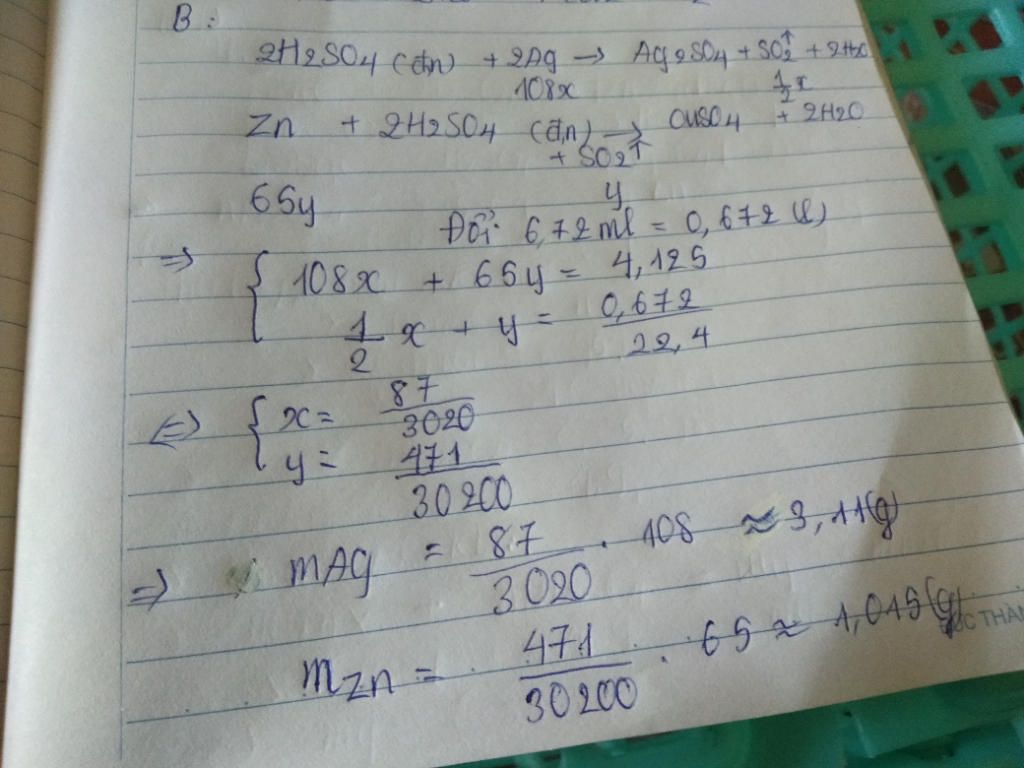 B :
2H2SO4 (đ,n) + 2Ag → Ag2SO4 + SO2↑ + 2H2O
108x 1/2 x
Zn + 2H2SO4 (đ,n) → CuSO4 + 2H2O
+ SO2↑
65y y
Đổi 6,72 ml = 0,672 (l)
⇒ { 108x + 65y = 4,125
1/2 x + y = 0,672/22,4
⇔ { x = 87/3020
y = 471/30200
⇒ mAg = 87/3020 . 108 ≈ 3,11(g)
mZn = 471/30200 . 65 ≈ 1,015(g)